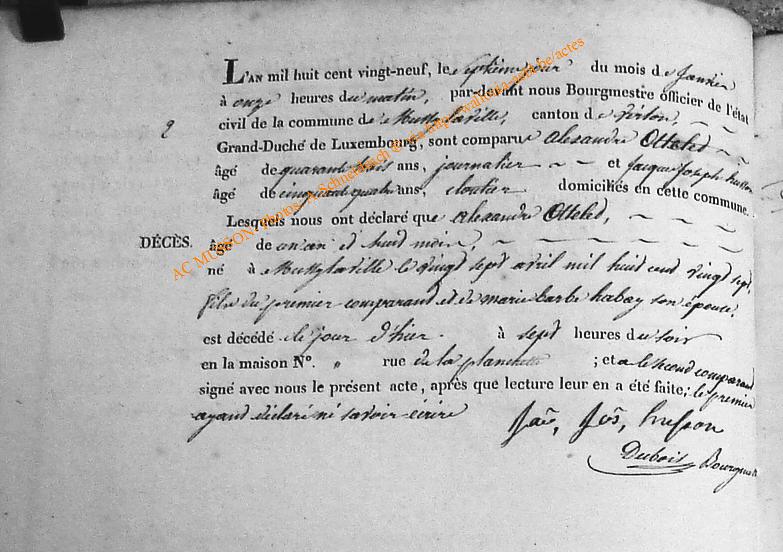 L'AN mil huit cent vingt-neuf, le septième jour du mois de Janvier
à onze heures du matin, par-devant nous Bourgmestre officier de l'état
2 civil de la commune de Mussylaville, canton de Virton,
Grand-Duché de Luxembourg, sont comparu Alexandre Otteled
âgé de quarante trois ans, journalier et Jacque Joseph husson
âgé de cinquante quatre ans, cloutier domiciliés en cette commune.
Lesquels nous ont déclaré que Alexandre Otteled,
DÉCÈS. âgé de un an et huit mois,
né à Mussylaville le vingt sept avril mil huit cent vingt sept,
fils du premier comparant et de marie barbe habay son épouse,
est décédé le jour d'hier à sept heures du soir
en la maison N°. " rue de la planchette ; et a le second comparant
signé avec nous le présent acte, après que lecture leur en a été faite, le premier
ayant déclaré ne savoir écrire
Jac, Jos, husson
Dubois Bourgm
AC MUSSON, Photos A. Schneidesch